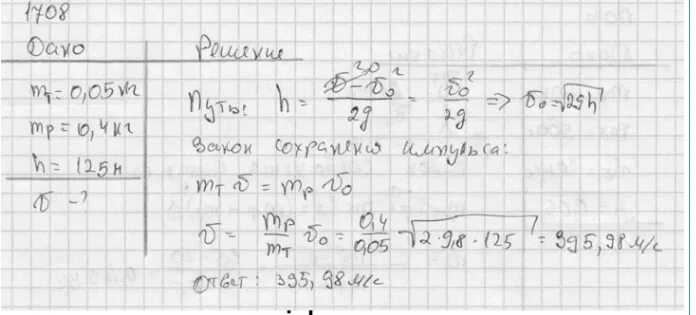 1708
Дано
Решение
mт = 0,05 кг
mр = 0,4 кг
h = 125 м
υ - ?
Путь: h = (υ² - υ₀²)/2g = υ₀²/2g => υ₀ = √2gh
Закон сохранения импульса:
mт υ = mр υ₀
υ = mр/mт υ₀ = 0,4/0,05 √2·9,8·125 = 395,98 м/с
ответ: 395,98 м/с